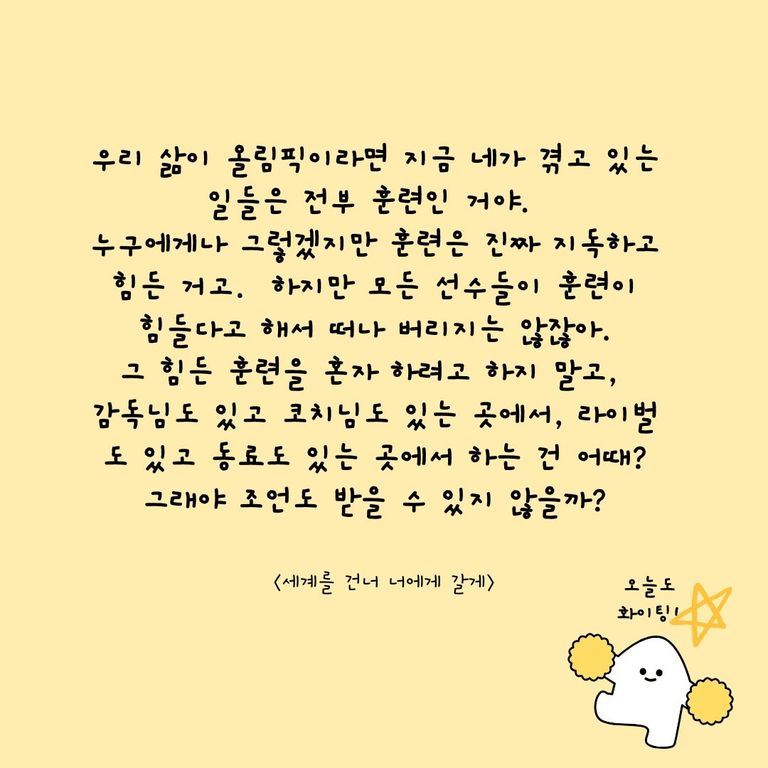 우리 삶이 올림픽이라면 지금 네가 겪고 있는
일들은 전부 훈련인 거야.
누구에게나 그렇겠지만 훈련은 진짜 지독하고
힘든 거고. 하지만 모든 선수들이 훈련이
힘들다고 해서 떠나 버리지는 않잖아.
그 힘든 훈련을 혼자 하려고 하지 말고,
감독님도 있고 코치님도 있는 곳에서, 라이벌
도 있고 동료도 있는 곳에서 하는 건 어때?
그래야 조언도 받을 수 있지 않을까?
<세계를 건너 너에게 갈게>
오늘도
화이팅!